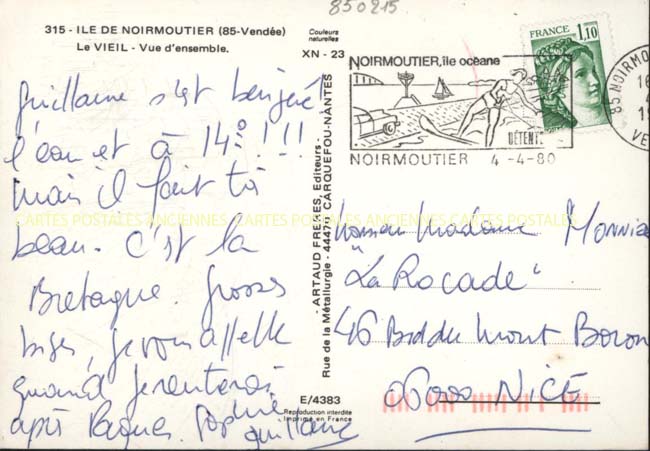 850215
315 - ILE DE NOIRMOUTIER (85-Vendée)
Le VIEIL - Vue d'ensemble.
Couleurs
naturelles
XN - 23
Guillaume s'est baigné!
l'eau est à 14° !!!
mais il fait tś
beau. C'est la
Bretagne. Grosses
bises, je vous appelle
quand je rentrerai
après Pâques. Sophie
Guillaume
- ARTAUD FRERES, Editeurs -
Rue de la Métallurgie - 44470 CARQUEFOU-NANTES
E/4383
Reproduction interdite
Imprimé en France
NOIRMOUTIER, île océane
DÉTENTE
NOIRMOUTIER 4-4-80
FRANCE 1,10
85 NOIRMOU
VE
Monsieur Madame MONNIE
"La Rocade"
46 Bd du Mont Boron
06000 NICE
CARTES POSTALES ANCIENNES CARTES POSTALES ANCIENNES CARTES POSTALES